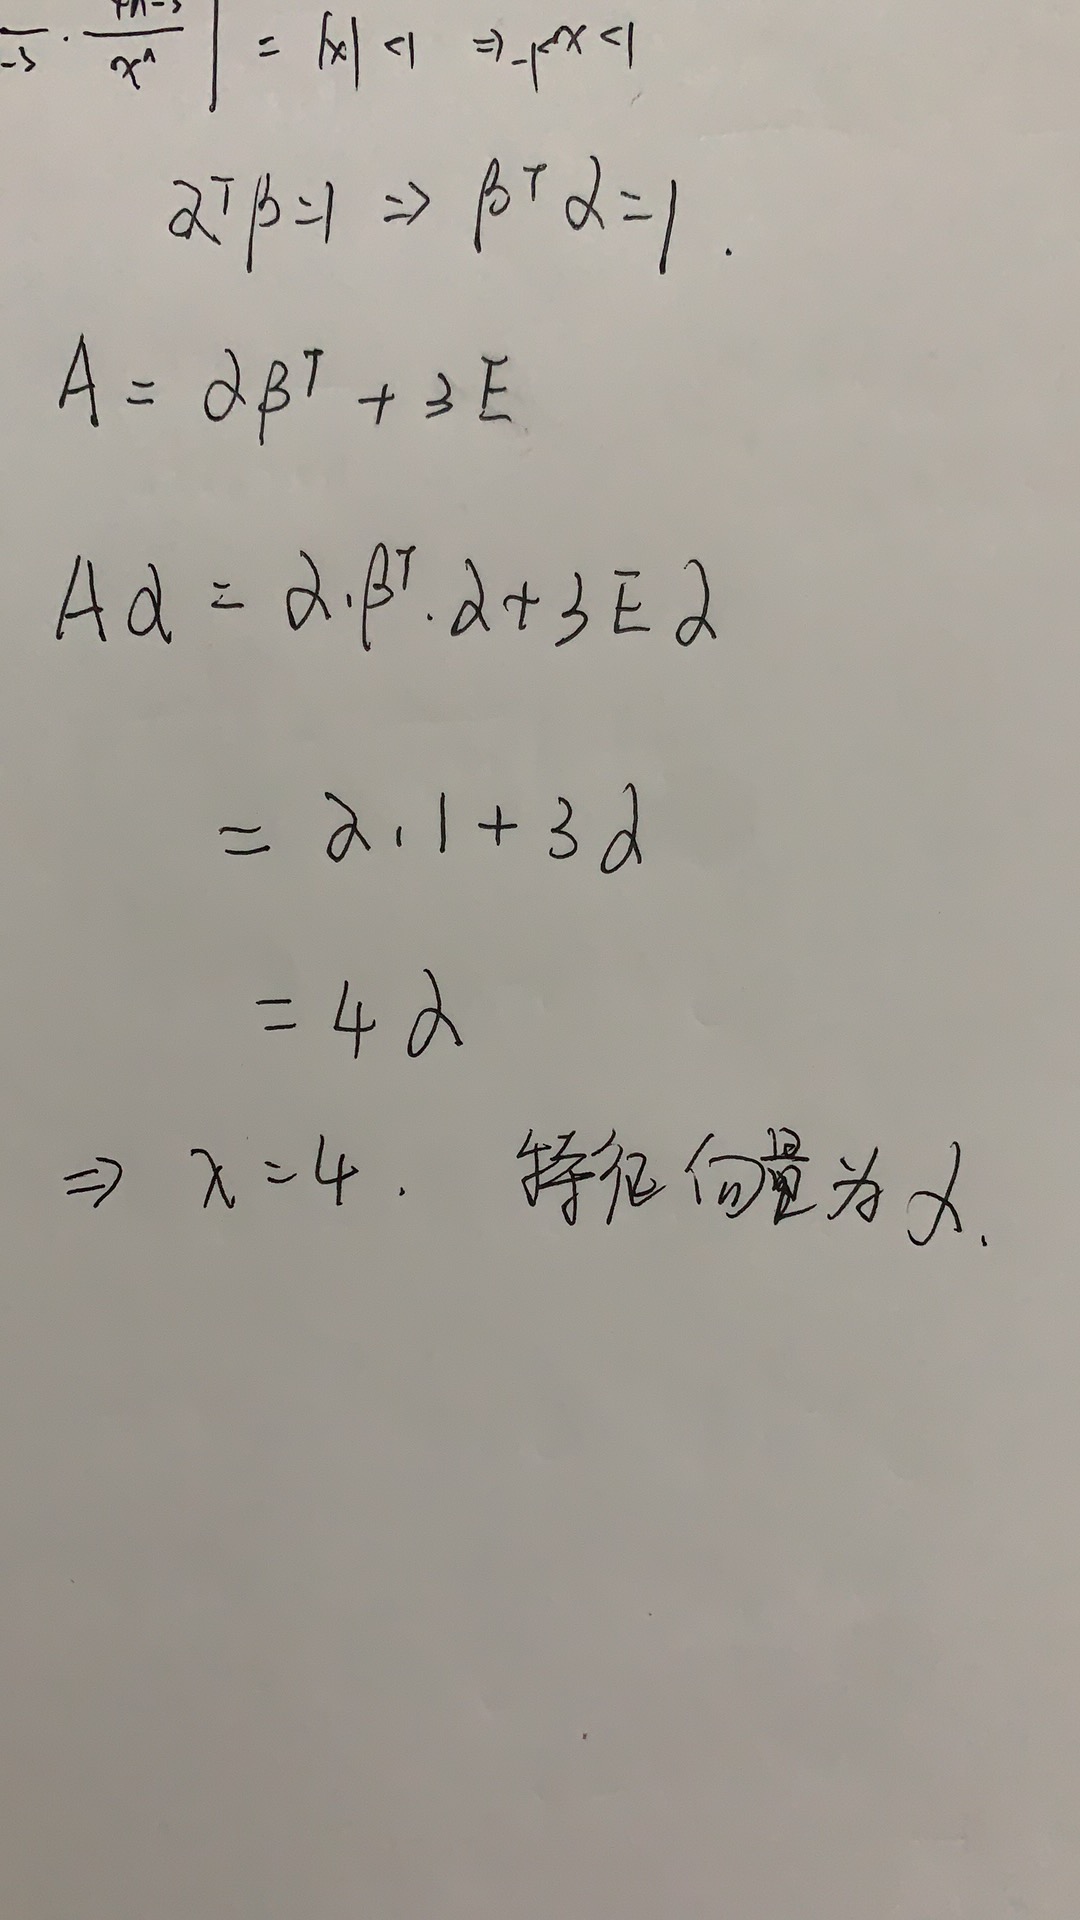 -3 · 4n-3 / xⁿ | = |x| <1 ⇒ -1<x<1
αᵀβ=1 ⇒ βᵀα=1.
A = αβᵀ + 3E
Aα = α·βᵀ·α+3Eα
= α·1+3α
= 4α
⇒ λ=4. 特征向量为α.